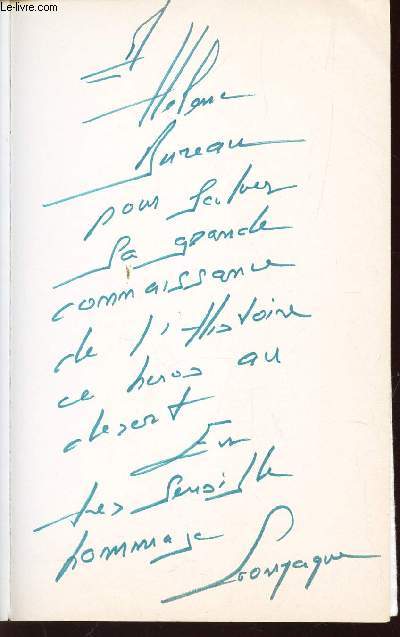 Le-livre.com
A
Helene
Bureau
pour saluer
sa grande
connaissance
de l'Histoire
ce heros au
desert
En
tres sensible
hommage
Gonzague